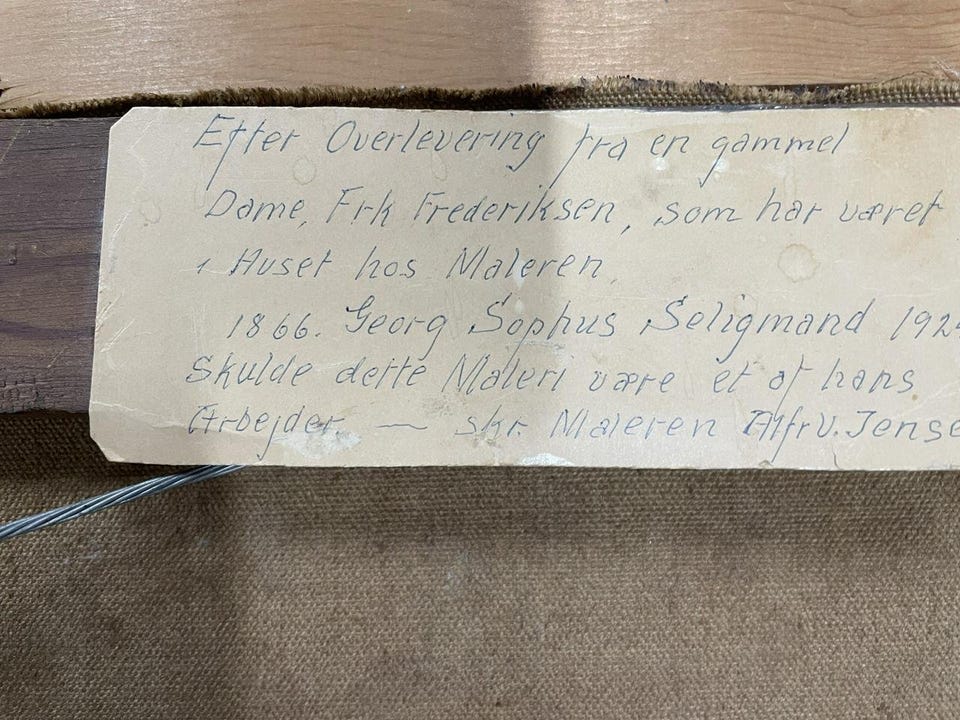 Efter Overlevering fra en gammel
Dame, Frk Frederiksen, som har været
i Huset hos Maleren
1866. Georg Sophus Seligmand
Skulde dette Maleri være et af hans
Arbejder. — skr. Maleren Alfr V. Jense